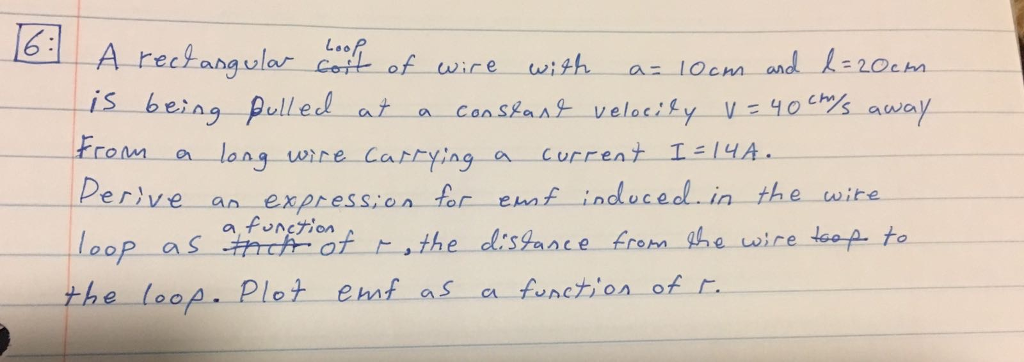 6: A rectangular Loop coil of wire with a = 10cm and l = 20cm
is being pulled at a constant velocity V = 40 cm/s away
From a long wire carrying a current I = 14A.
Derive an expression for emf induced. in the wire
loop as a function of r, the distance from the wire loop to
the loop. Plot emf as a function of r.